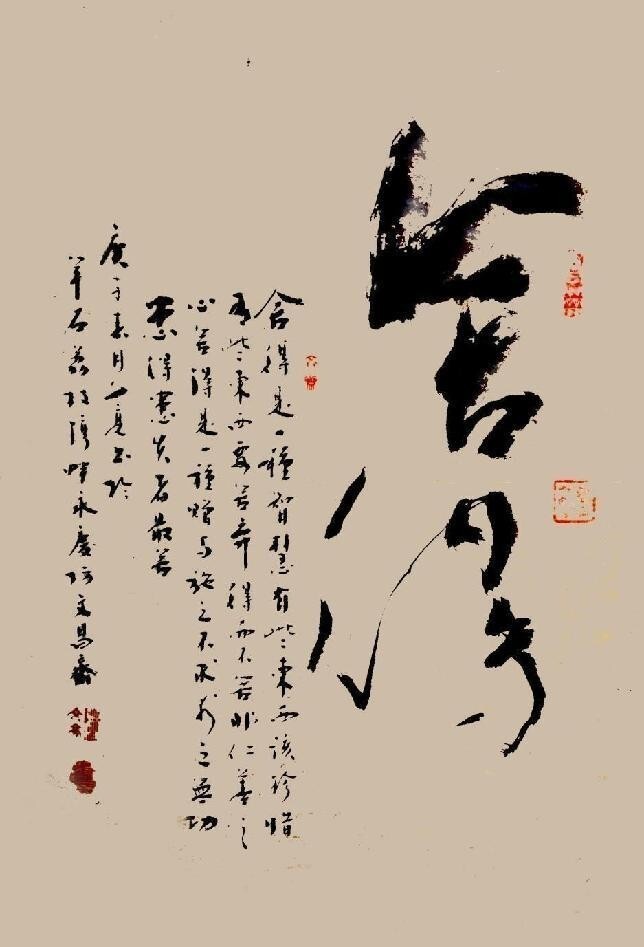 舍得
舍得是一種智慧有些東西該珍惜
有些東西要舍棄得而不舍非仁善之
心舍得是一種贈与施之不求之無功
患得患失者最苦
庚子月書於
羊石荔枝灣畔永慶坊文昌齋